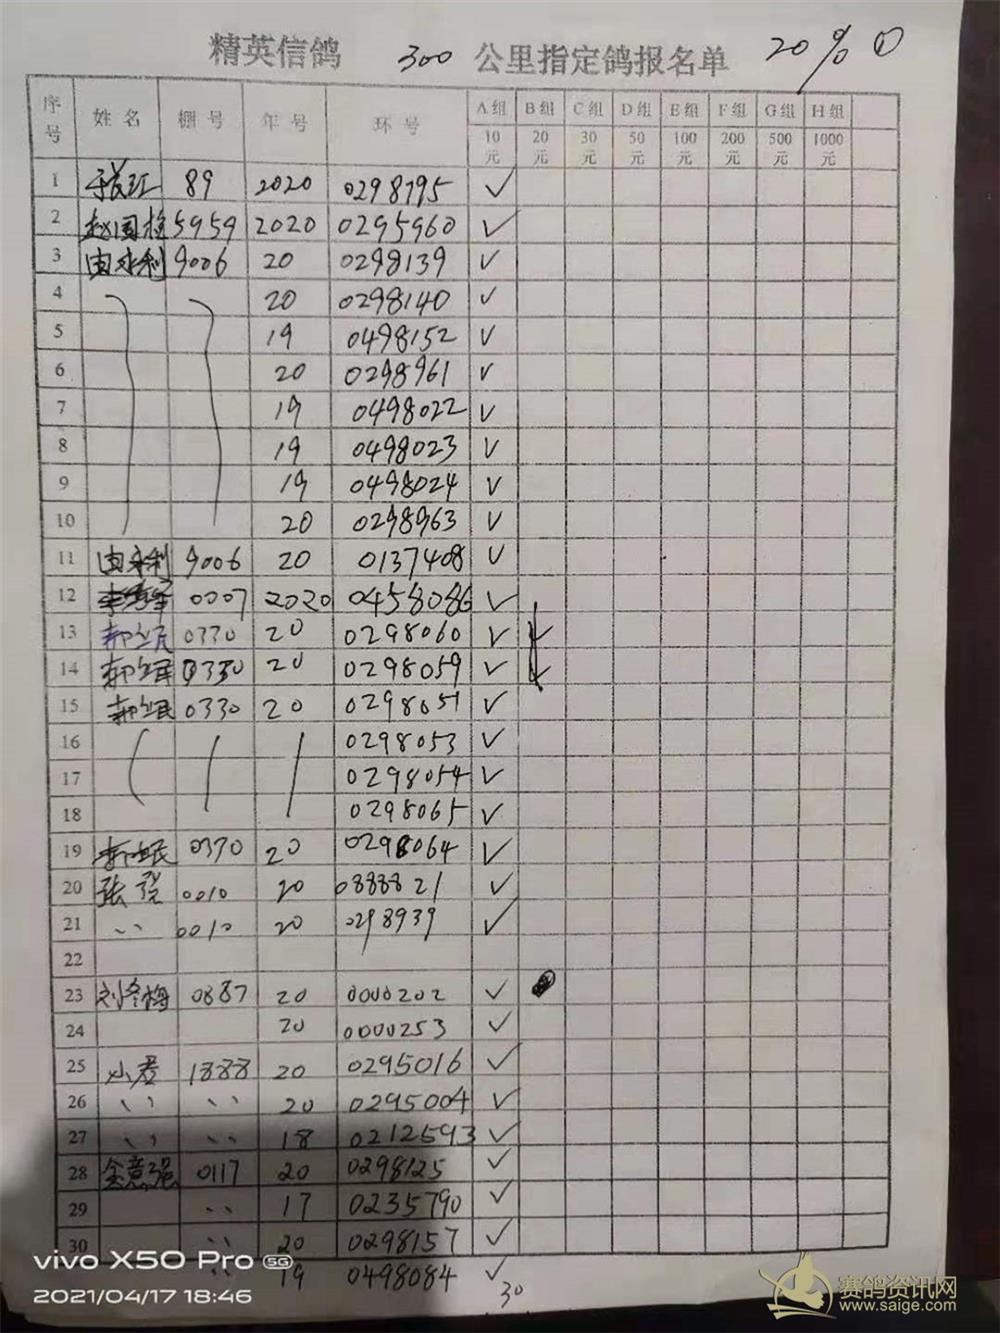 精英信鸽 300 公里指定鸽报名单 20% ①
序号 姓名 棚号 年号 环号 A组 B组 C组 D组 E组 F组 G组 H组
10元 20元 30元 50元 100元 200元 500元 1000元
1 89 2020 0298795 ✓
2 赵国栓 5959 2020 0295960 ✓
3 由永利 9006 20 0298139 ✓
4 20 0298140 ✓
5 19 0498152 ✓
6 20 0298961 ✓
7 19 0498022 ✓
8 19 0498023 ✓
9 19 0498024 ✓
10 20 0298963 ✓
11 由永利 9006 20 0137408 ✓
12 0007 2020 0458086 ✓
13 0330 20 0298060 ✓
14 0330 20 0298059 ✓
15 0330 20 0298051 ✓
16 0298053 ✓
17 0298054 ✓
18 0298065 ✓
19 0330 20 0298064 ✓
20 张 0010 20 0888821 ✓
21 〃 0010 20 0298939 ✓
22
23 刘冬梅 0887 20 0000202 ✓
24 20 0000253 ✓
25 小君 1888 20 0295016 ✓
26 〃 〃 20 0295004 ✓
27 〃 〃 18 0212593 ✓
28 金意强 0117 20 0298125 ✓
29 〃 17 0235790 ✓
30 〃 20 0298157 ✓
〃 19 0498084 ✓
30
vivo X50 Pro 5G
2021/04/17 18:46
赛鸽资讯网
www.saige.com